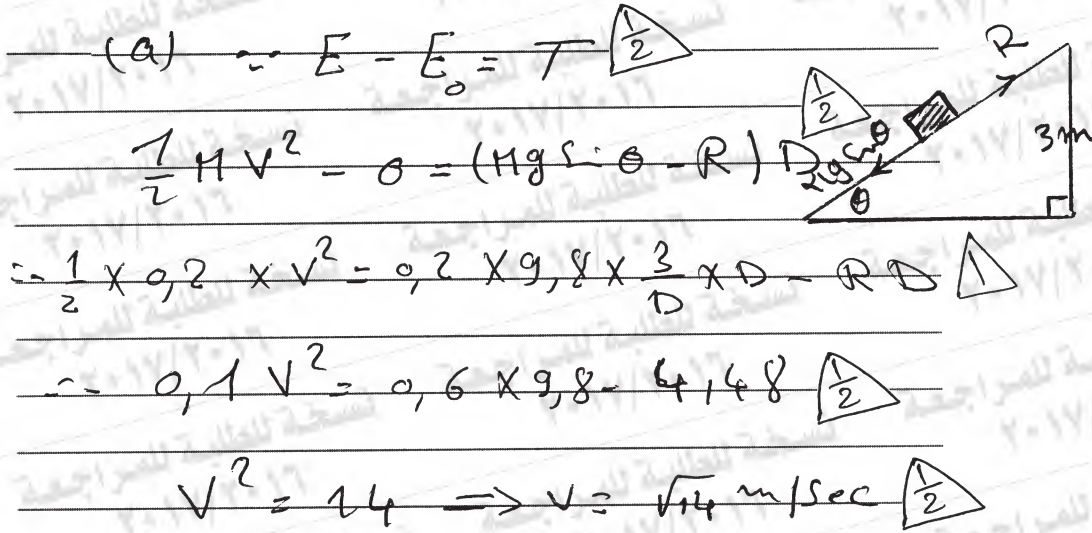 (a) ∵ E - E₀ = T 1/2
1/2 M V² - 0 = (Mg Sin θ - R) D 1/2
∴ 1/2 × 0,2 × V² = 0,2 × 9,8 × 3/D × D - R D 1
∴ 0,1 V² = 0,6 × 9,8 - 4,48 1/2
V² = 14 ⟹ V = √14 m/sec 1/2
R
3m
Mg Sin θ
θ
نسخة للطلبة للمراجعة
٢٠١٧/٢٠١٦